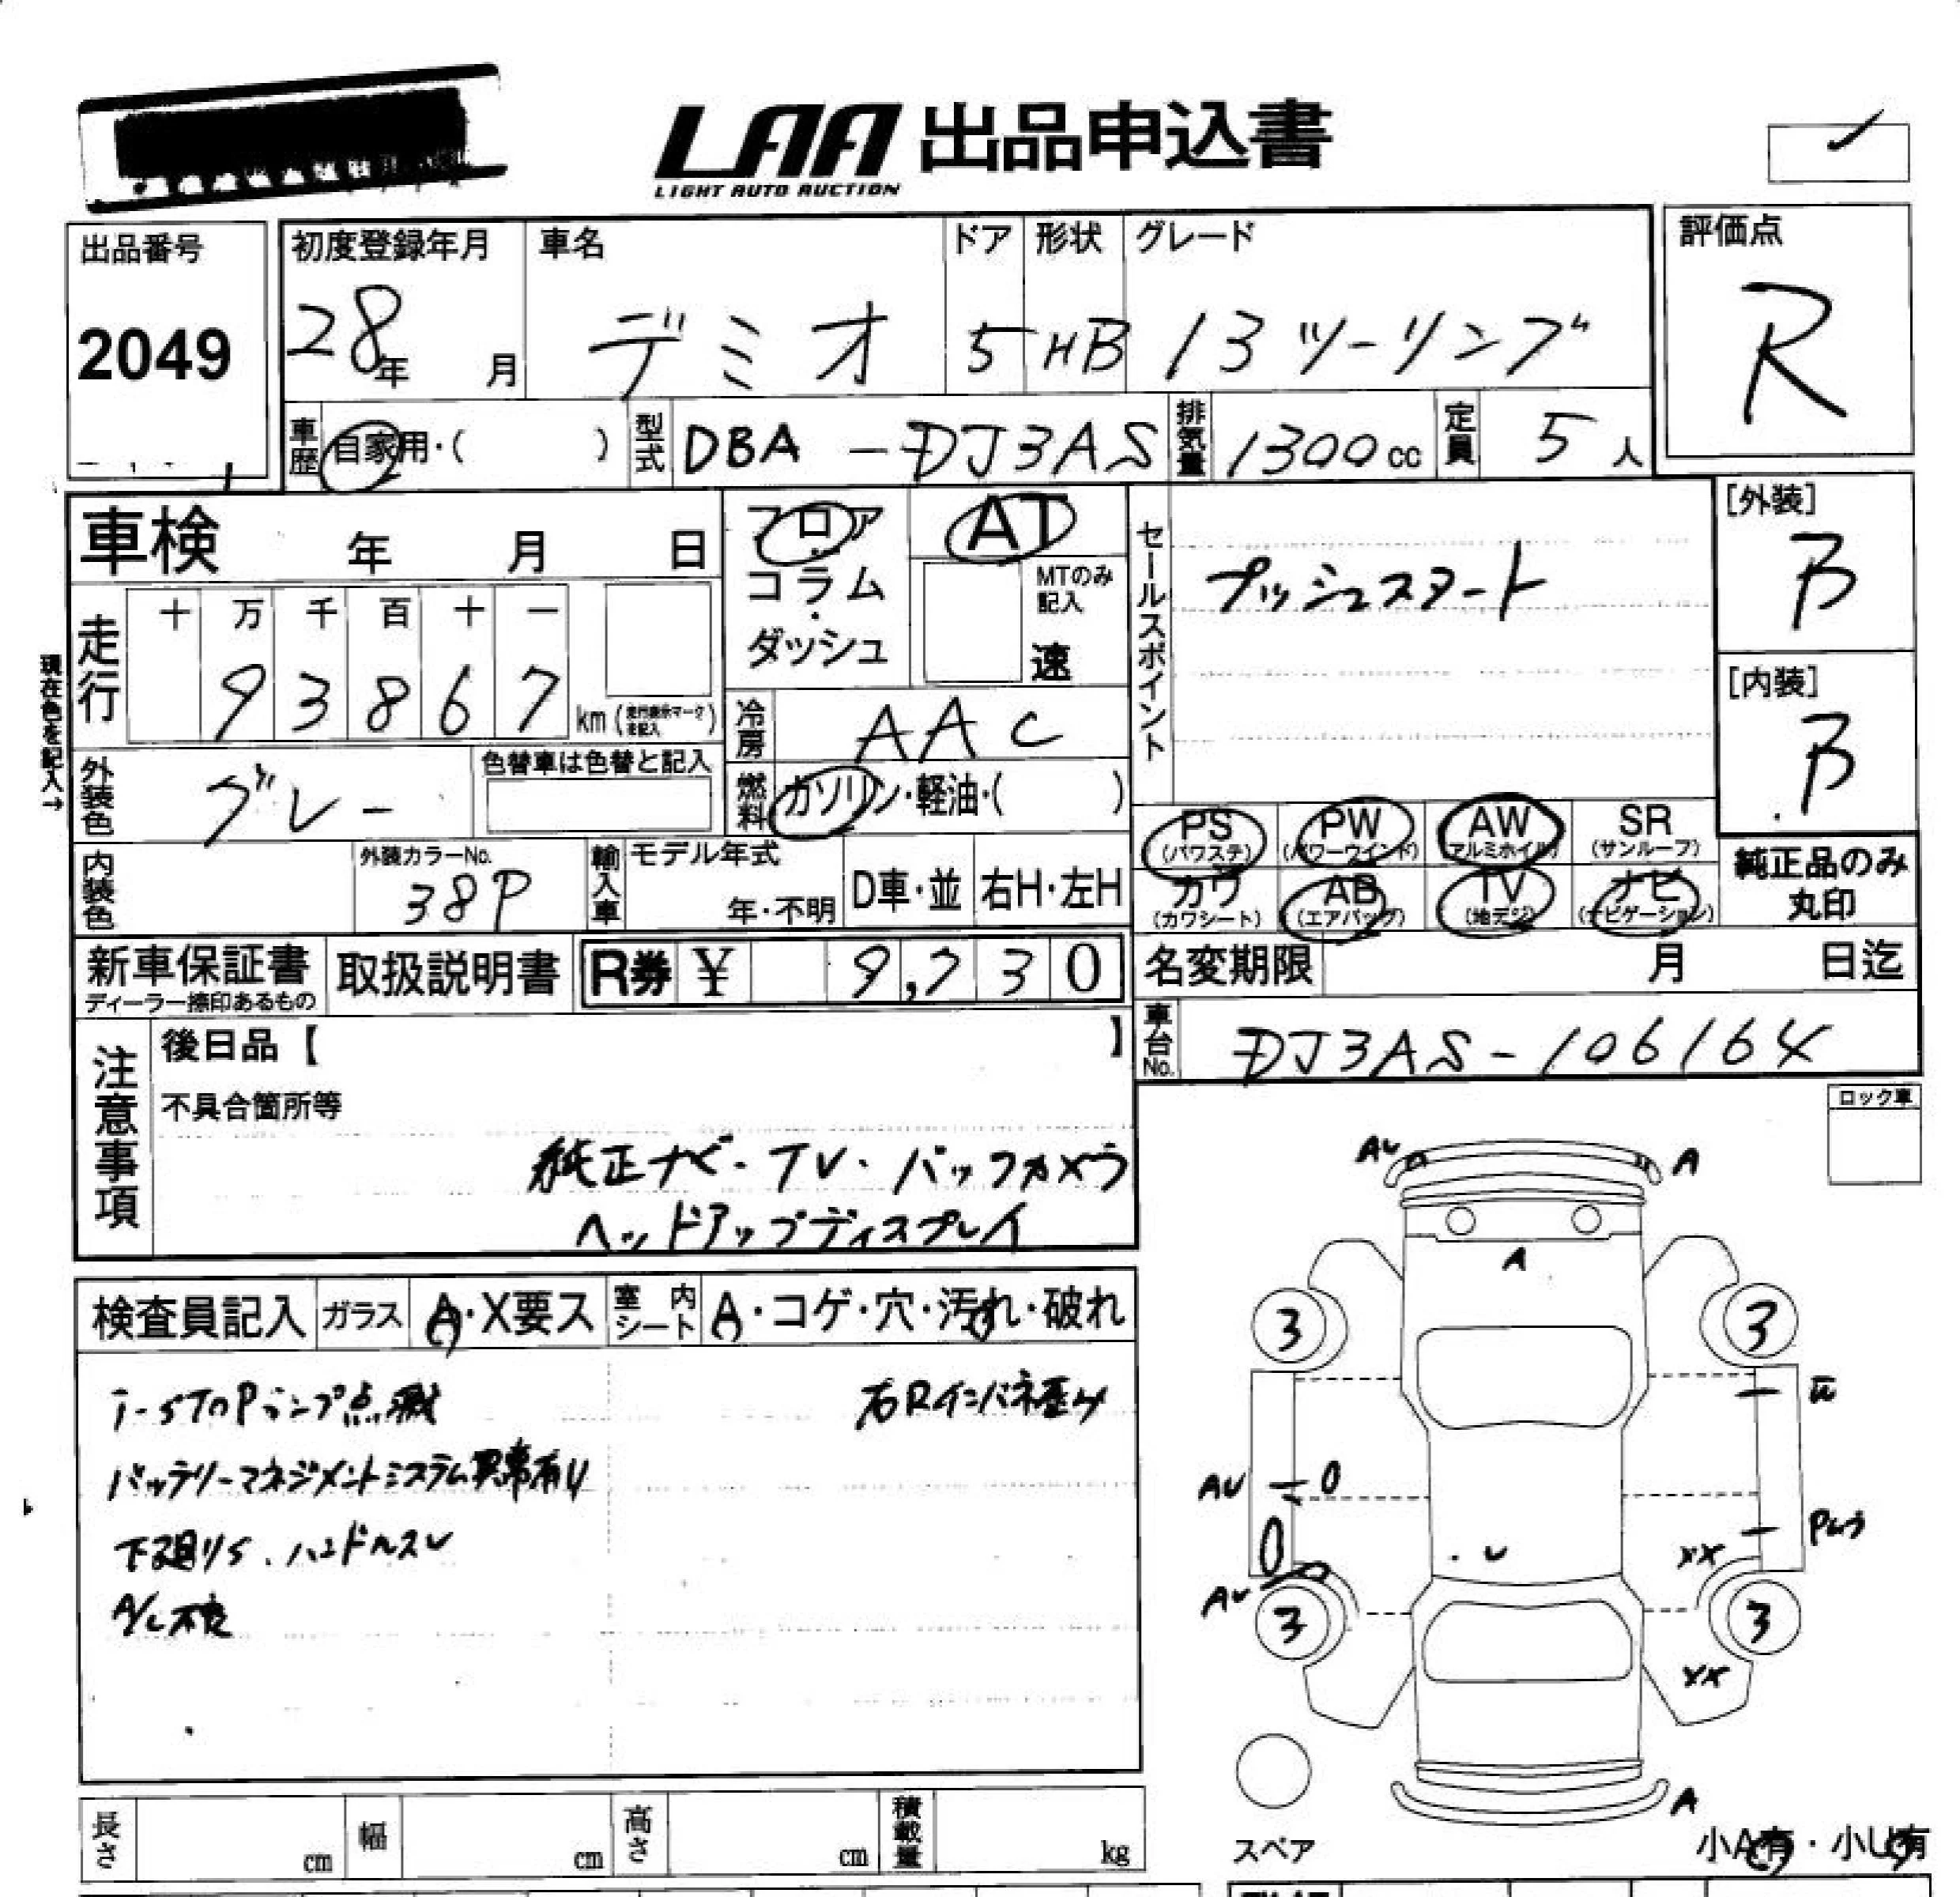 LAA 出品申込書
LIGHT AUTO AUCTION
出品番号
2049
初度登録年月
28年 月
車名
デミオ
ドア
5
形状
HB
グレード
13ツーリング
評価点
R
車歴
自家用・( )
型式
DBA-DJ3AS
排気量
1300cc
定員
5人
車検 年 月 日
フロア・コラム・ダッシュ
AT
MTのみ記入
速
セールスポイント
プッシュスタート
[外装]
B
[内装]
B
現在色を記入→
走行
十 万 千 百 十 一
9 3 8 6 7
km (走行表示マークを記入)
冷房
AAC
外装色
グレー
色替車は色替と記入
燃料
ガソリン・軽油・( )
PS
(パワステ)
PW
(パワーウインド)
AW
(アルミホイル)
SR
(サンルーフ)
内装色
外装カラーNo.
38P
輸入車
モデル年式
年・不明
D車・並
右H・左H
カワ
(カワシート)
AB
(エアバッグ)
TV
(地デジ)
ナビ
(ナビゲーション)
純正品のみ
丸印
新車保証書
ディーラー捺印あるもの
取扱説明書
R券 ¥ 9,730
名変期限 月 日迄
車台No.
DJ3AS-106164
注意事項
後日品【 】
不具合箇所等
純正ナビ・TV・バックカメラ
ヘッドアップディスプレイ
ロック車
検査員記入
ガラス
A・X要ス
室内シート
A・コゲ・穴・汚れ・破れ
i-STOPランプ点滅
右Rインパネ歪み
バッテリーマネジメントシステム異常有り
下廻りS、ハンドルスレ
A/C不良
AU
A
A
3
3
AU
0
0
U
XX
AU
3
3
XX
A
スペア
小A有・小U有
長さ
cm
幅
cm
高さ
cm
積載量
kg